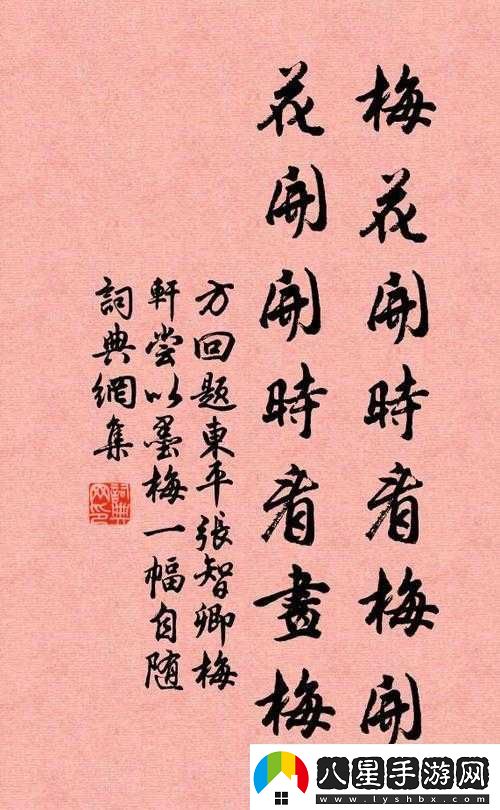 梅花開時看梅開
花開開時看畫梅
方回題東平張智卿梅
軒嘗以墨梅一幅自随
詞典網集
詞典
网印
八星手游网
www.lyshbx.com